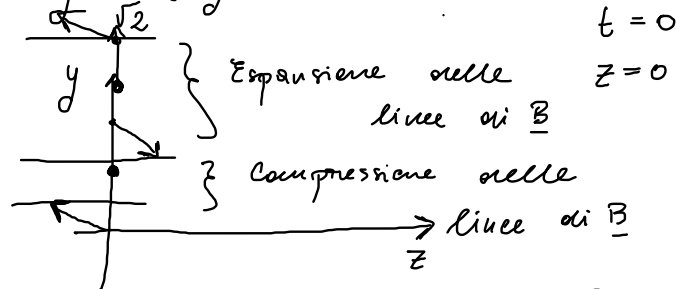 √2
t = 0
y
Espansione delle
z = 0
linee di B
Compressione delle
linee di B
z